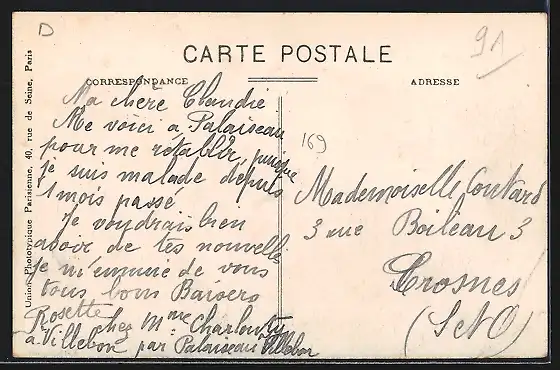 D
91
CARTE POSTALE
CORRESPONDANCE
ADRESSE
Union Phototypique Parisienne, 40, rue de Seine, Paris
Ma chère Claudie
Me voici a Palaiseau
pour me rétablir, puique
je suis malade depuis
1 mois passé
Je voudrais bien
avoir de tes nouvelle
je m'ennuie de vous
tous bons Baisers
Rosette
chez Mme
a Villebon par Palaiseau Villebon
169
Mademoiselle
3 rue Boileau 3
Crosnes
(S et O)